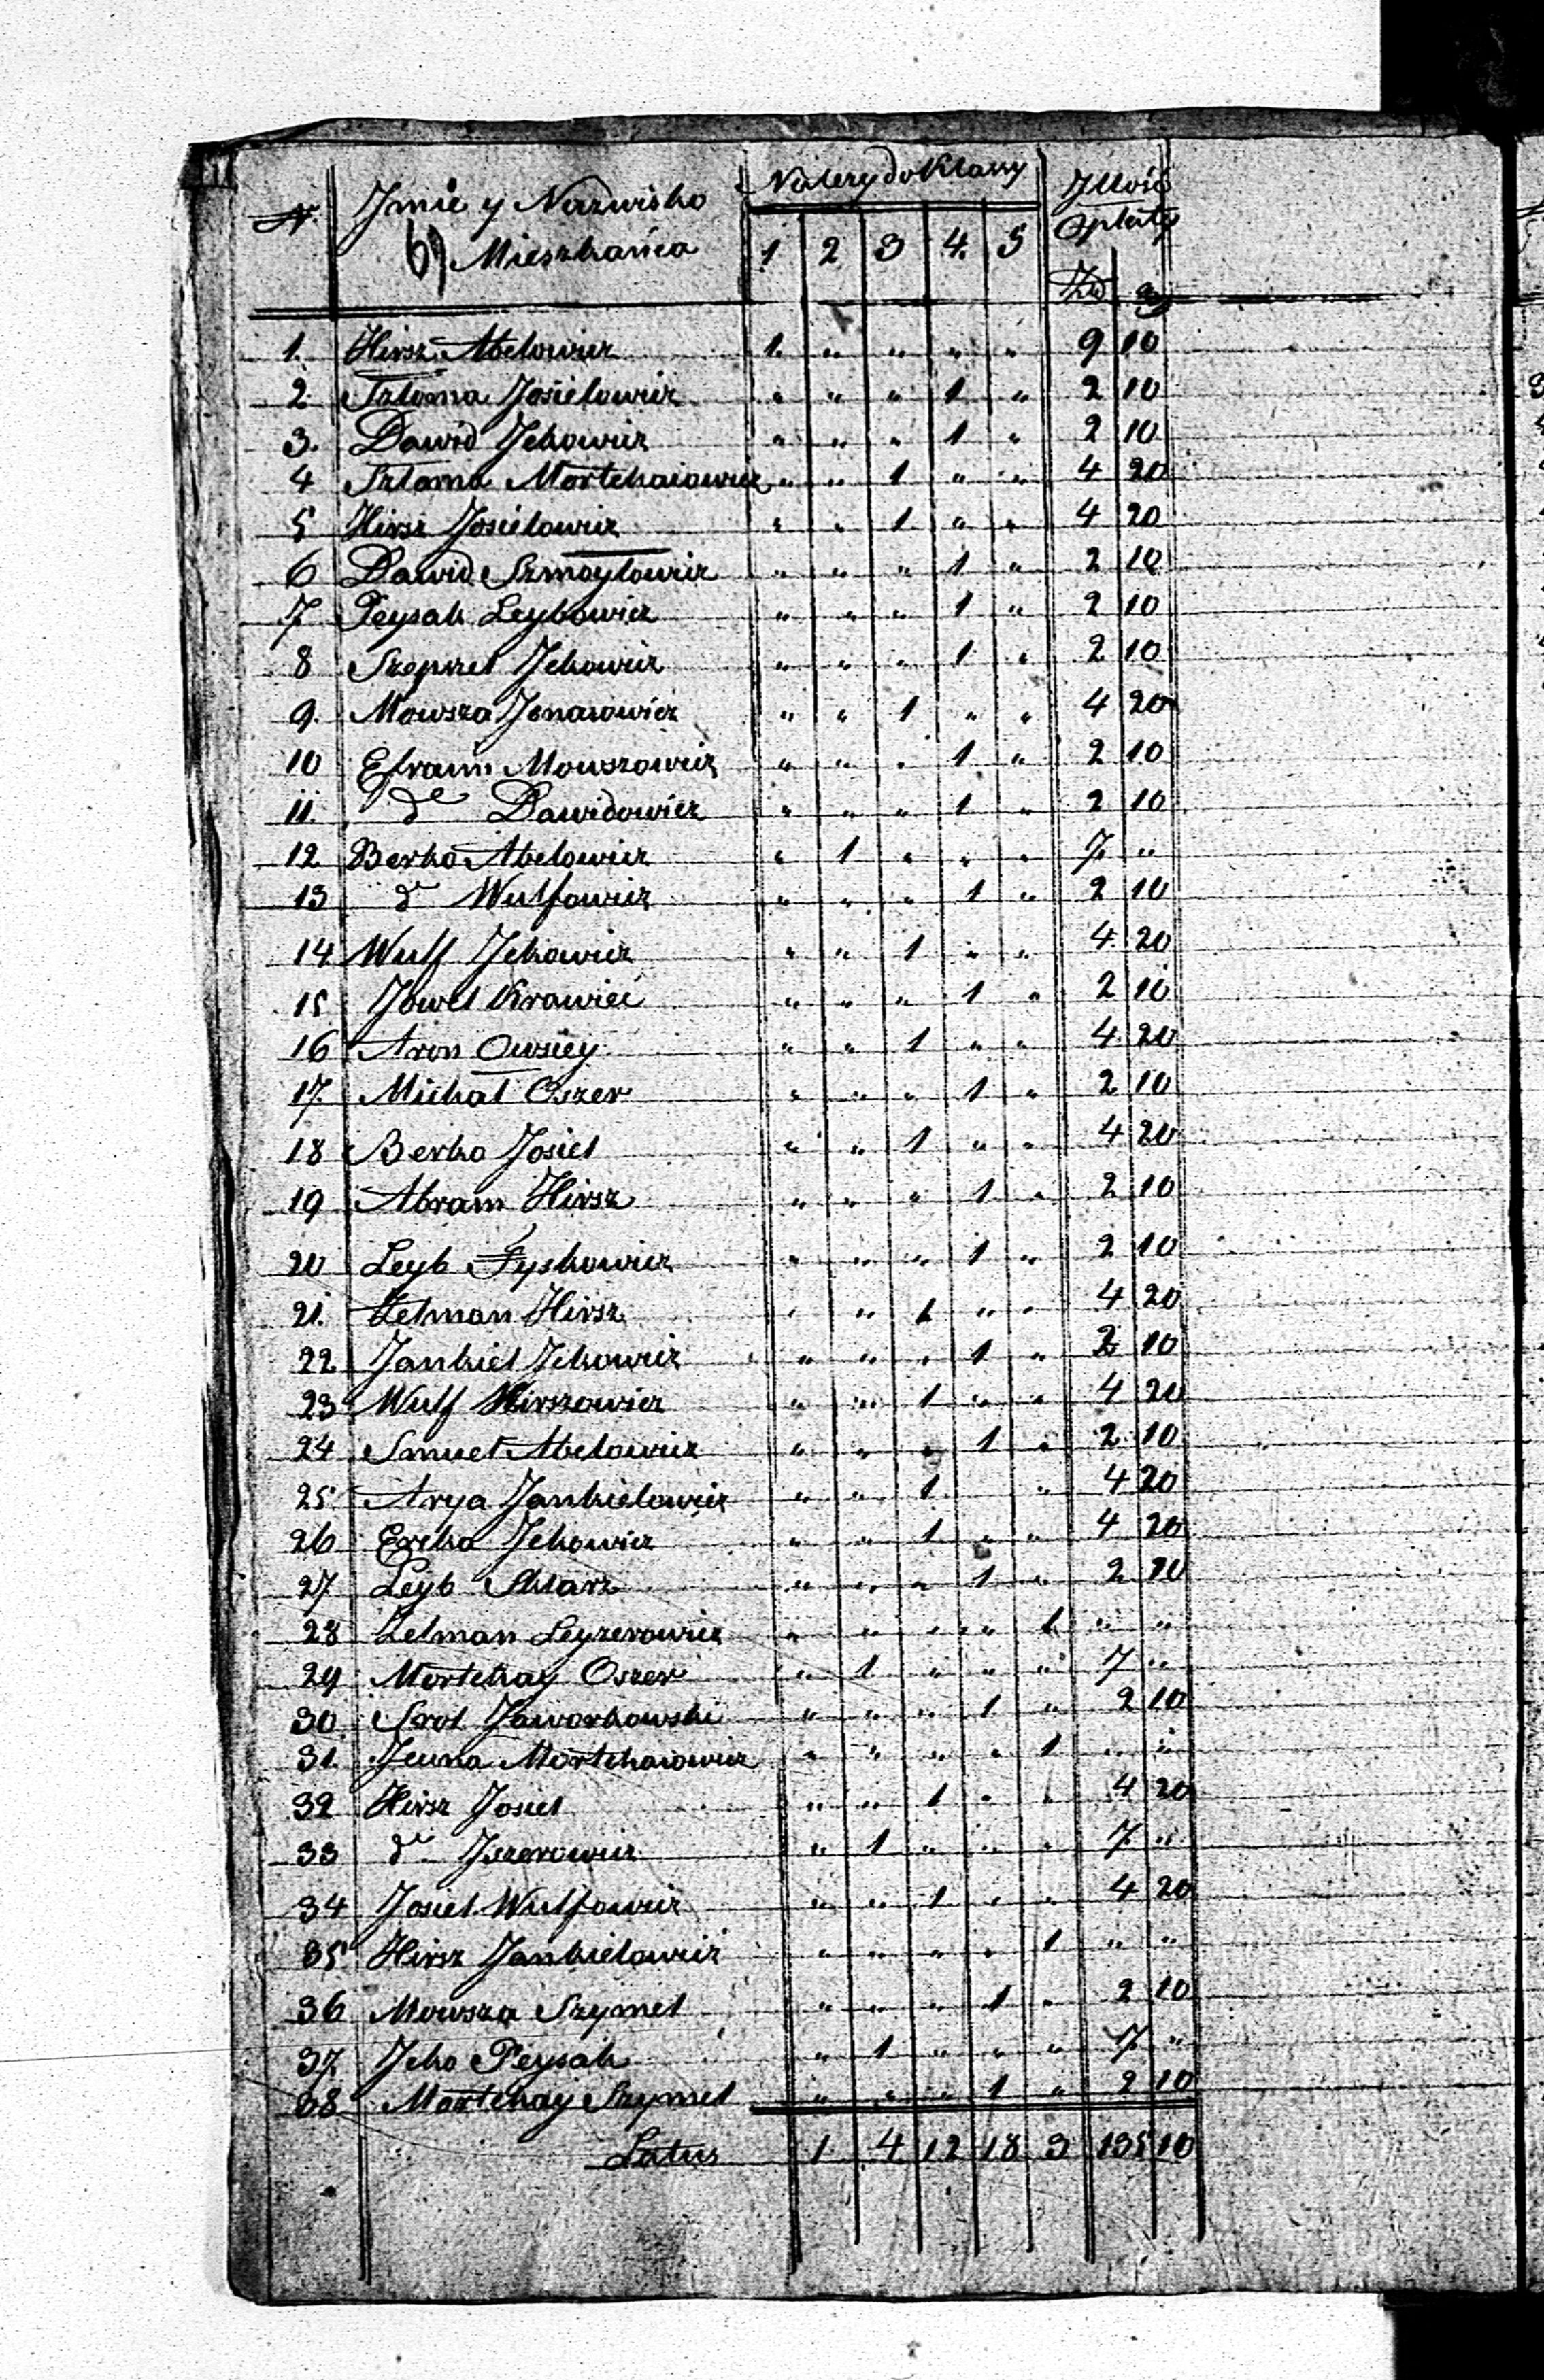 N. Jmie y Nazwisko Mieszkańca Należy do Klassy Jllość Opłaty
69
1 2 3 4. 5 Zło gr
1. Hirsz Abelowicz 1. " " " " 9 10
2 Szloma Josielowicz " " " 1 " 2 10
3. Dawid Jckowicz " " " 1 " 2 10
4 Szloma Mortchaiowicz " " 1 " " 4 20
5 Hirsz Josielowicz " " 1 " " 4 20
6 Dawid Szmoylowicz " " " 1 " 2 10
7 Peysak Leybowicz " " " 1 " 2 10
8 Szepszel Jckowicz " " " 1 " 2 10
9. Mowsza Jonasowicz " " 1 " " 4 20
10 Efraim Mowszowicz " " " 1 " 2 10
11. de Dawidowicz " " " 1 " 2 10
12 Berko Abelowicz " 1 " " " 7 "
13 de Wulfowicz " " " 1 " 2 10
14 Wulf Jckowicz " " 1 " " 4 20
15 Jowel Krawiec " " " 1 " 2 10
16 Aron Owsiey " " 1 " " 4 20
17 Michal Oszer " " " 1 " 2 10
18 Berko Josiel " " 1 " " 4 20
19 Abram Hirsz " " " 1 " 2 10
20 Leyb Fyskowicz " " " 1 " 2 10
21. Zelman Hirsz " " 1 " " 4 20
22 Jankiel Jckowicz " " " 1 " 2 10
23 Wulf Hirszowicz " " 1 " " 4 20
24 Smuel Abelowicz " " " 1 " 2 10
25 Arya Jankielowicz " " 1 " 4 20
26 Jckowicz " " 1 " " 4 20
27 Leyb Sklarz " " " 1 " 2 10
28 Zelman Leyzerowicz " " " " 1 " "
29 Mortchay Oszer " 1 " " " 7 "
30 Srol Jaworkowski " " " 1 " 2 10
31. Mortchaiowicz " " " " 1 " "
32 Hirsz Josiel " " 1 " " 4 20
33 de Jszerowicz " 1 " " " 7 "
34 Josiel Wulfowicz " " 1 " " 4 20
35 Hirsz Jankielowicz " " " " 1 " "
36 Mowsza Szymel " " " 1 " 2 10
37 Jcko Peysak " 1 " " " 7 "
38 Mortchay Szymel " " " 1 " 2 10
Latus 1 4 12 18 3 135 10